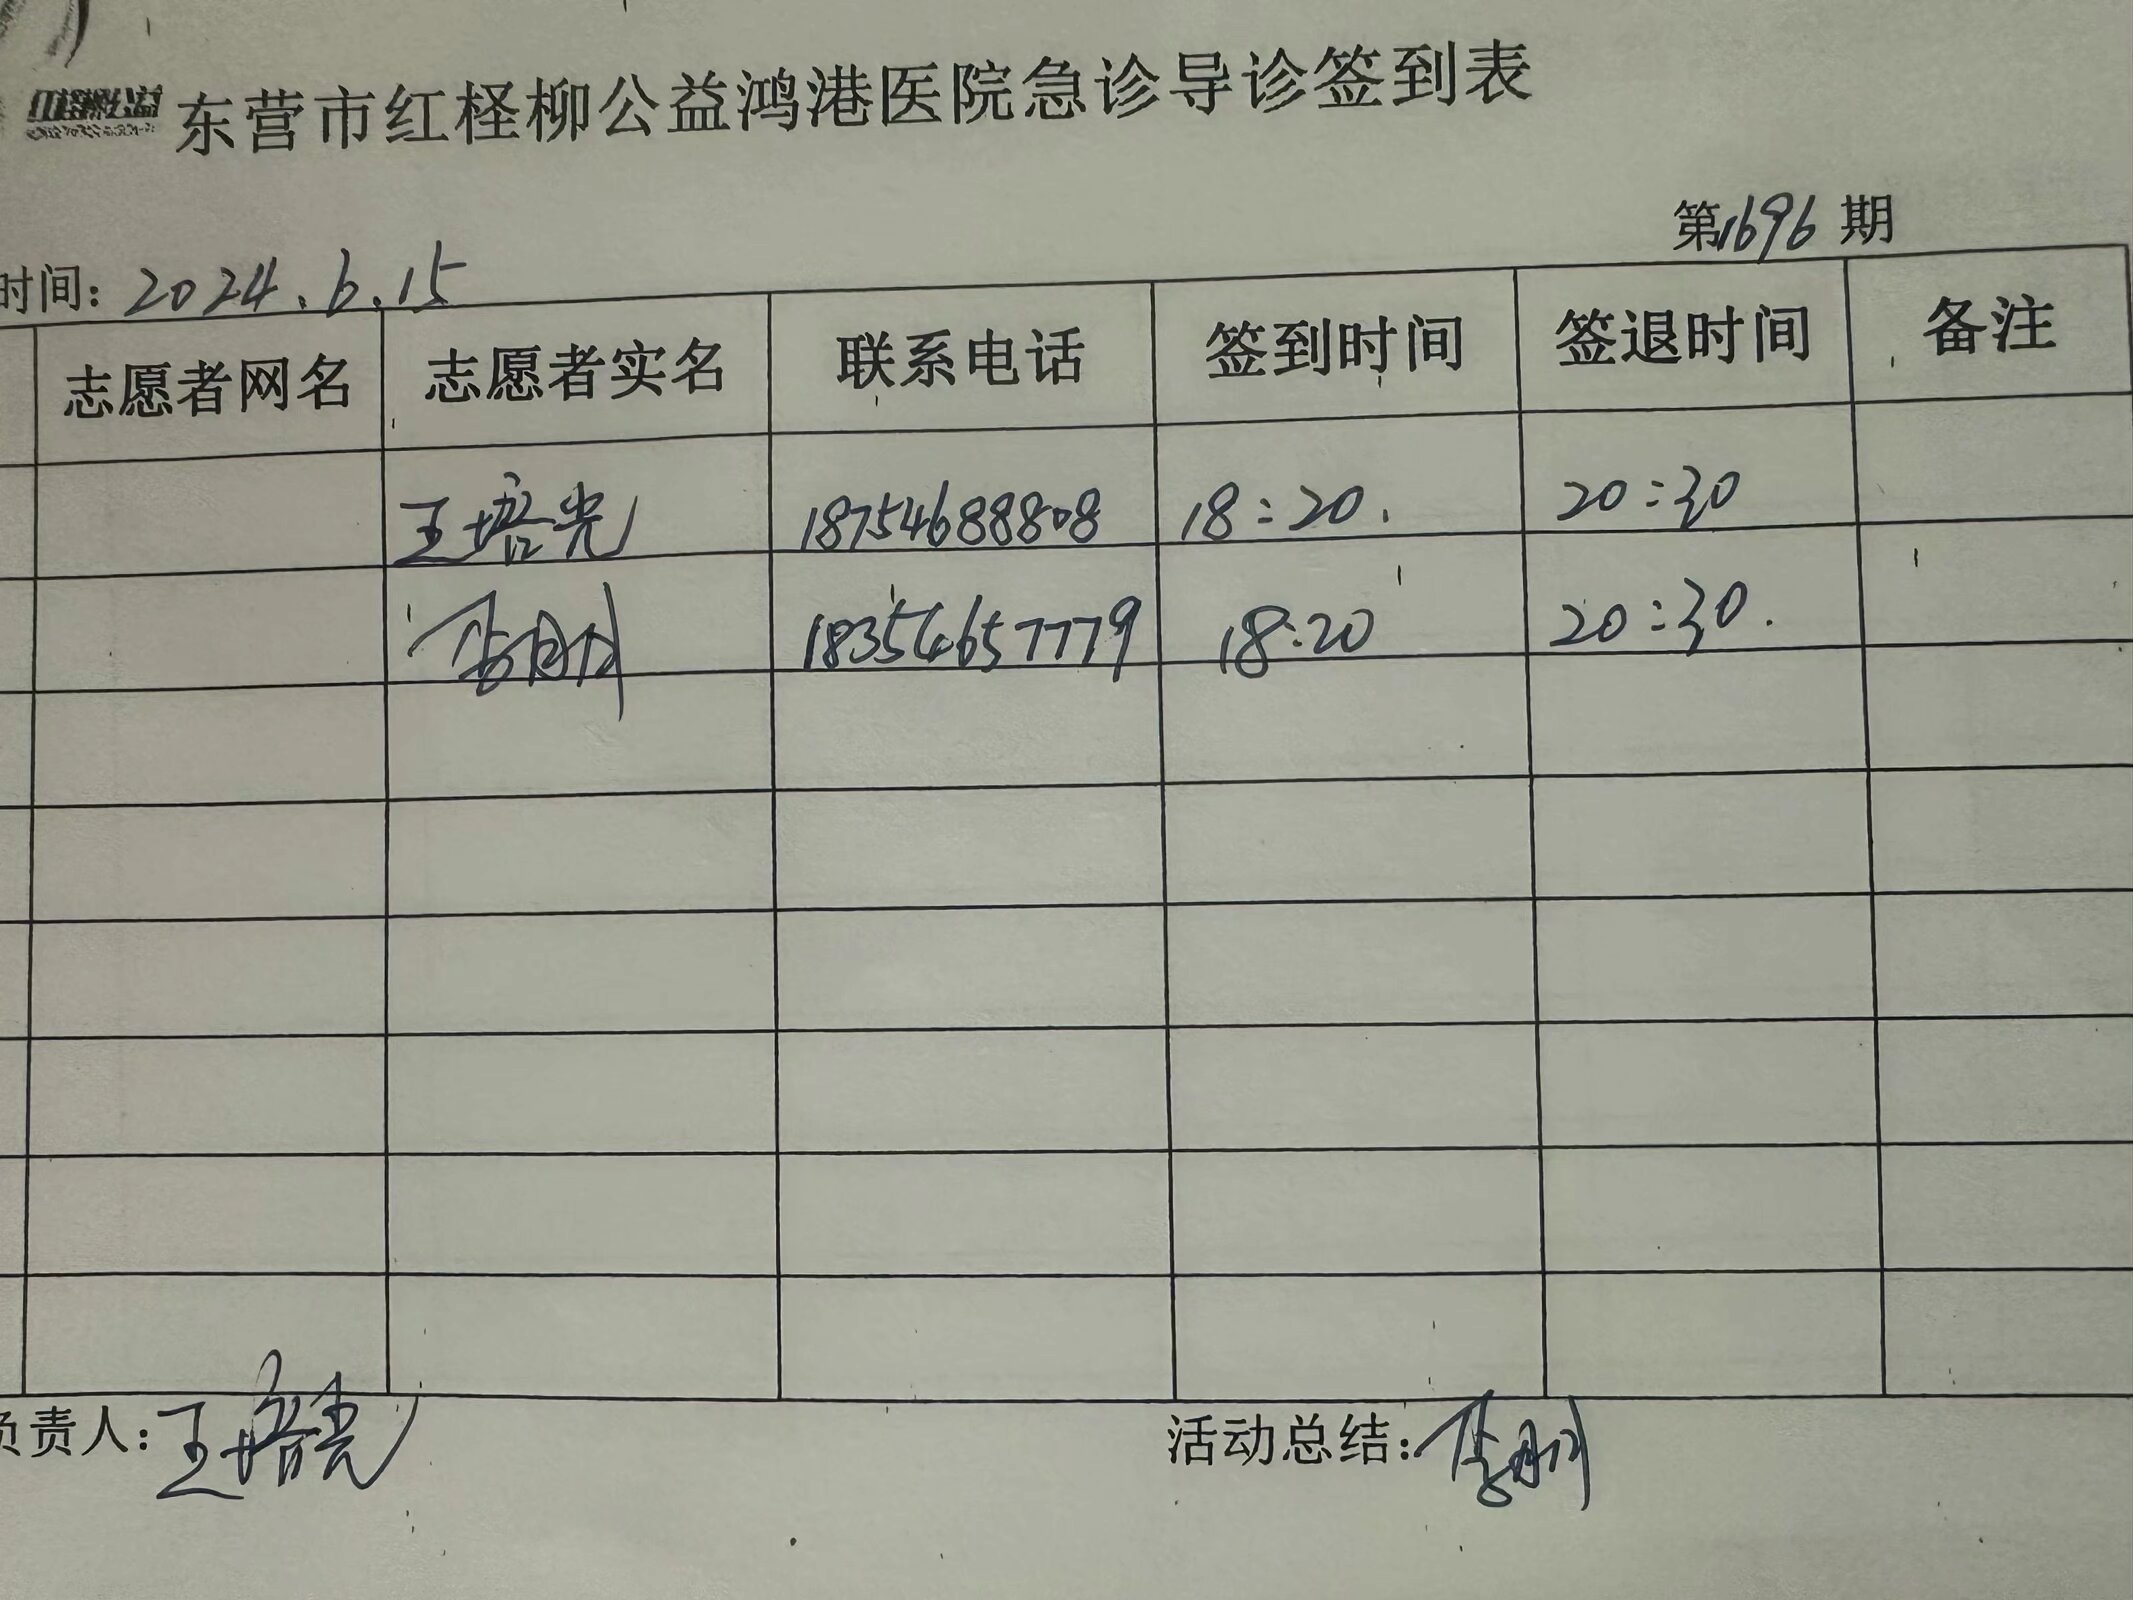 东营市红柽柳公益鸿港医院急诊导诊签到表
第1696期
时间：2024.6.15
志愿者网名 志愿者实名 联系电话 签到时间 签退时间 备注
王培光 18754688808 18:20. 20:30
18354657779 18:20 20:30.
负责人：王培光 活动总结：